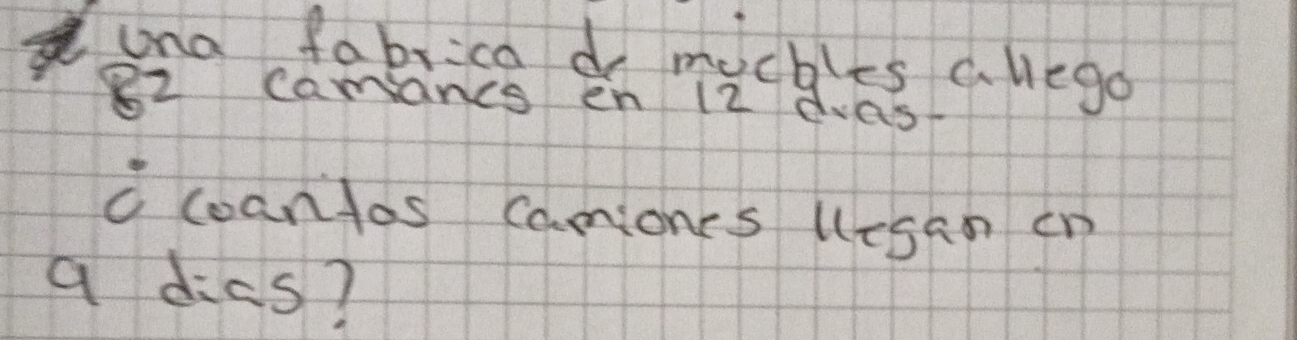 una fabrica de muebles a llego
82 camiones en 12 dias-
¿ coantos camiones llegan en
9 dias?